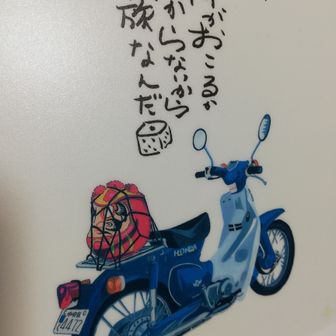 がおこるか
からないから
旅なんだ
HONDA
4472